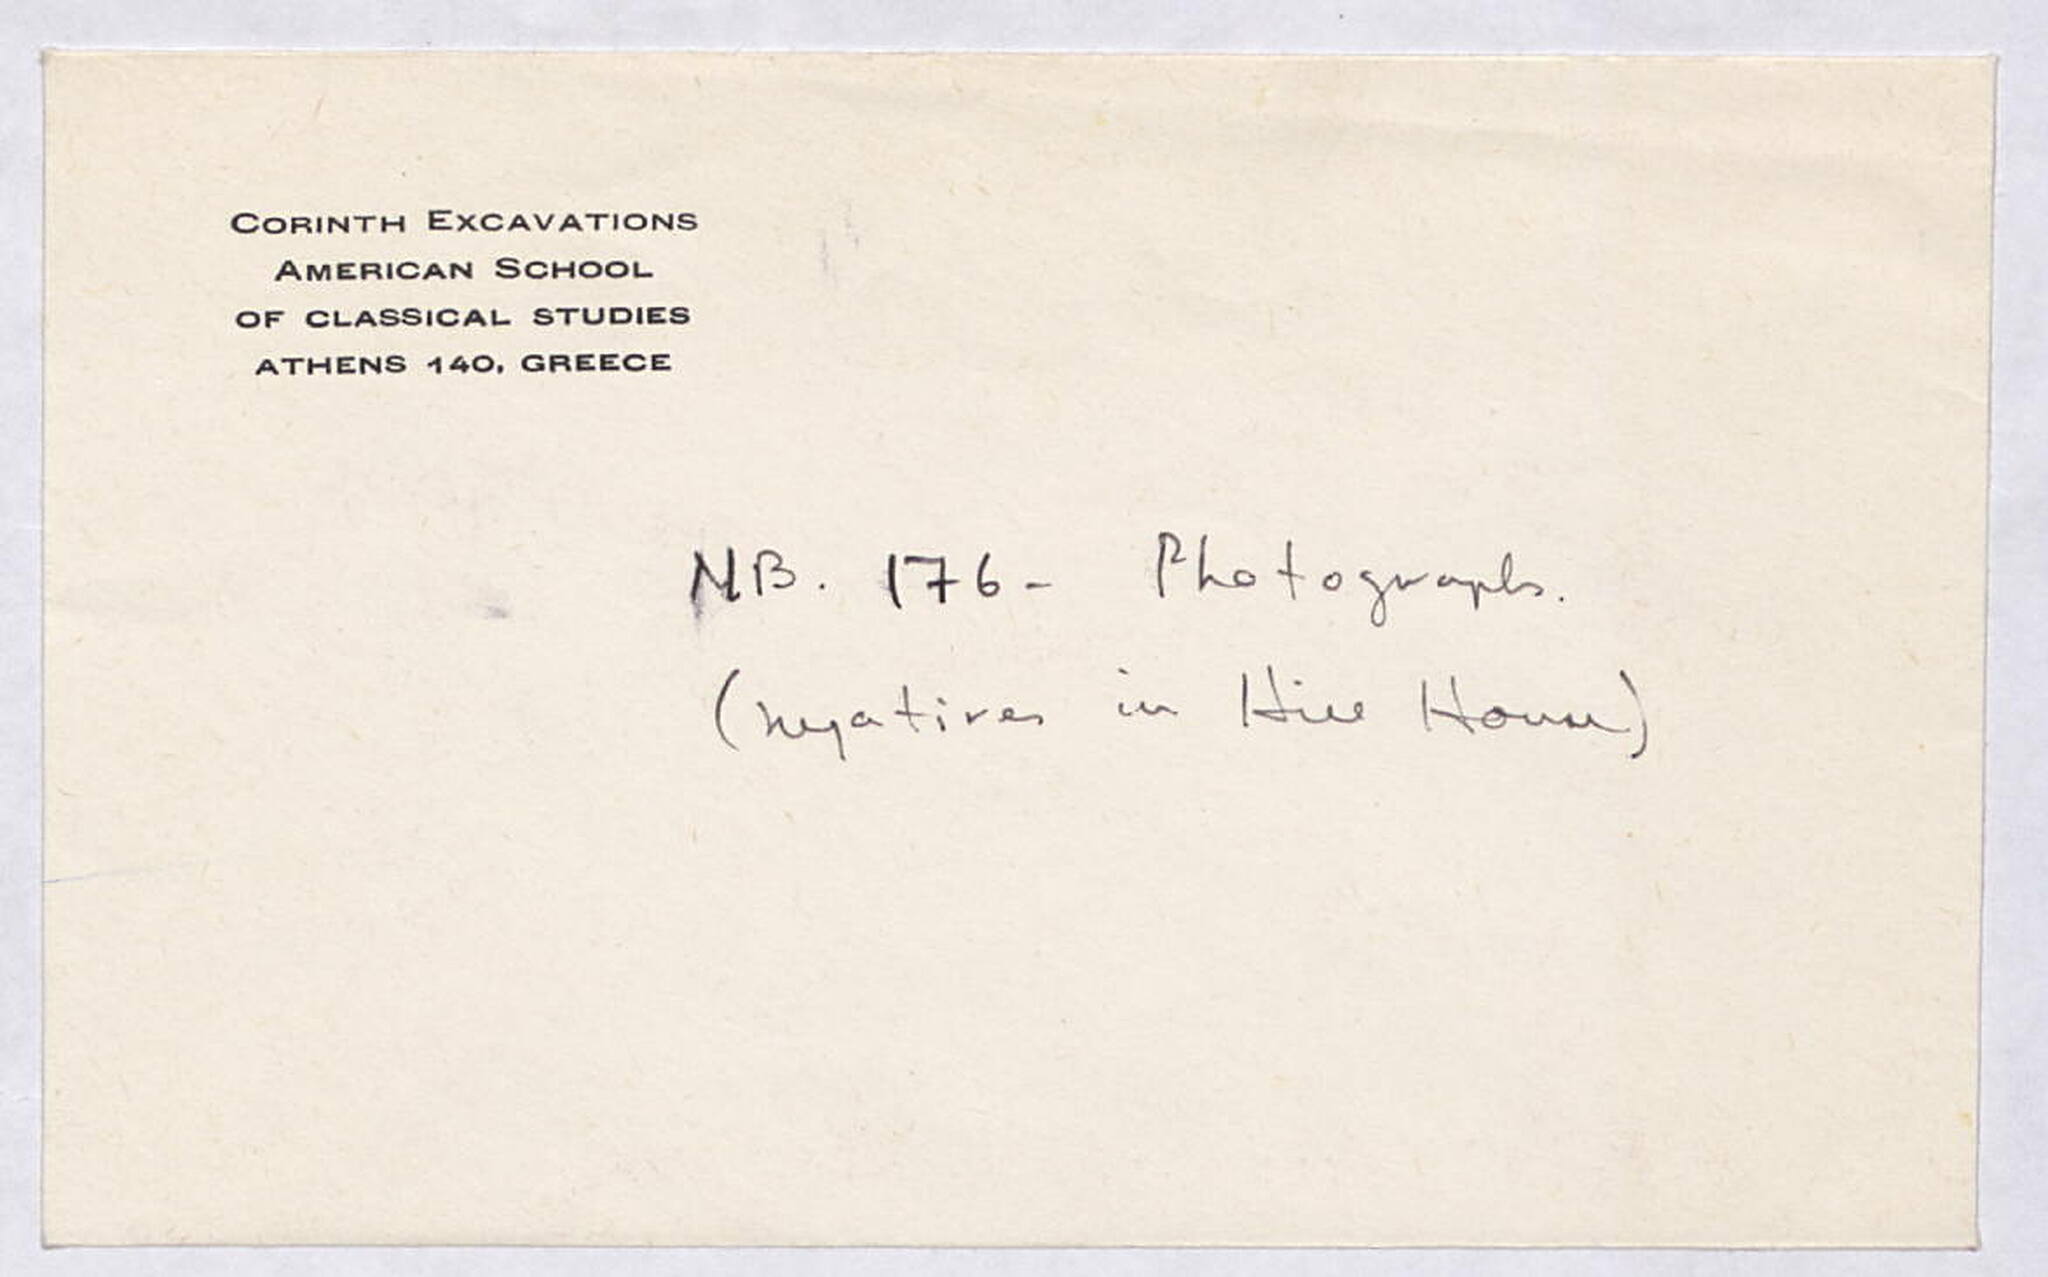 CORINTH EXCAVATIONS
AMERICAN SCHOOL
OF CLASSICAL STUDIES
ATHENS 140, GREECE
NB. 176 - Photographs.
(negatives in Hill House)